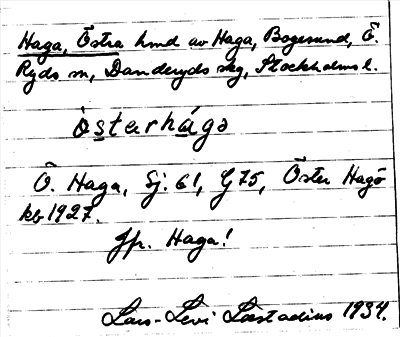 Haga, Östra hmd av Haga, Bogesund, Ö.
Ryds sn, Danderyds skg, Stockholms l.
òsterhága
Ö. Haga, Sj. 61, G75, Öster Haga
kb 1927.
Jfr. Haga!
Lars-Levi Læstadius 1934.